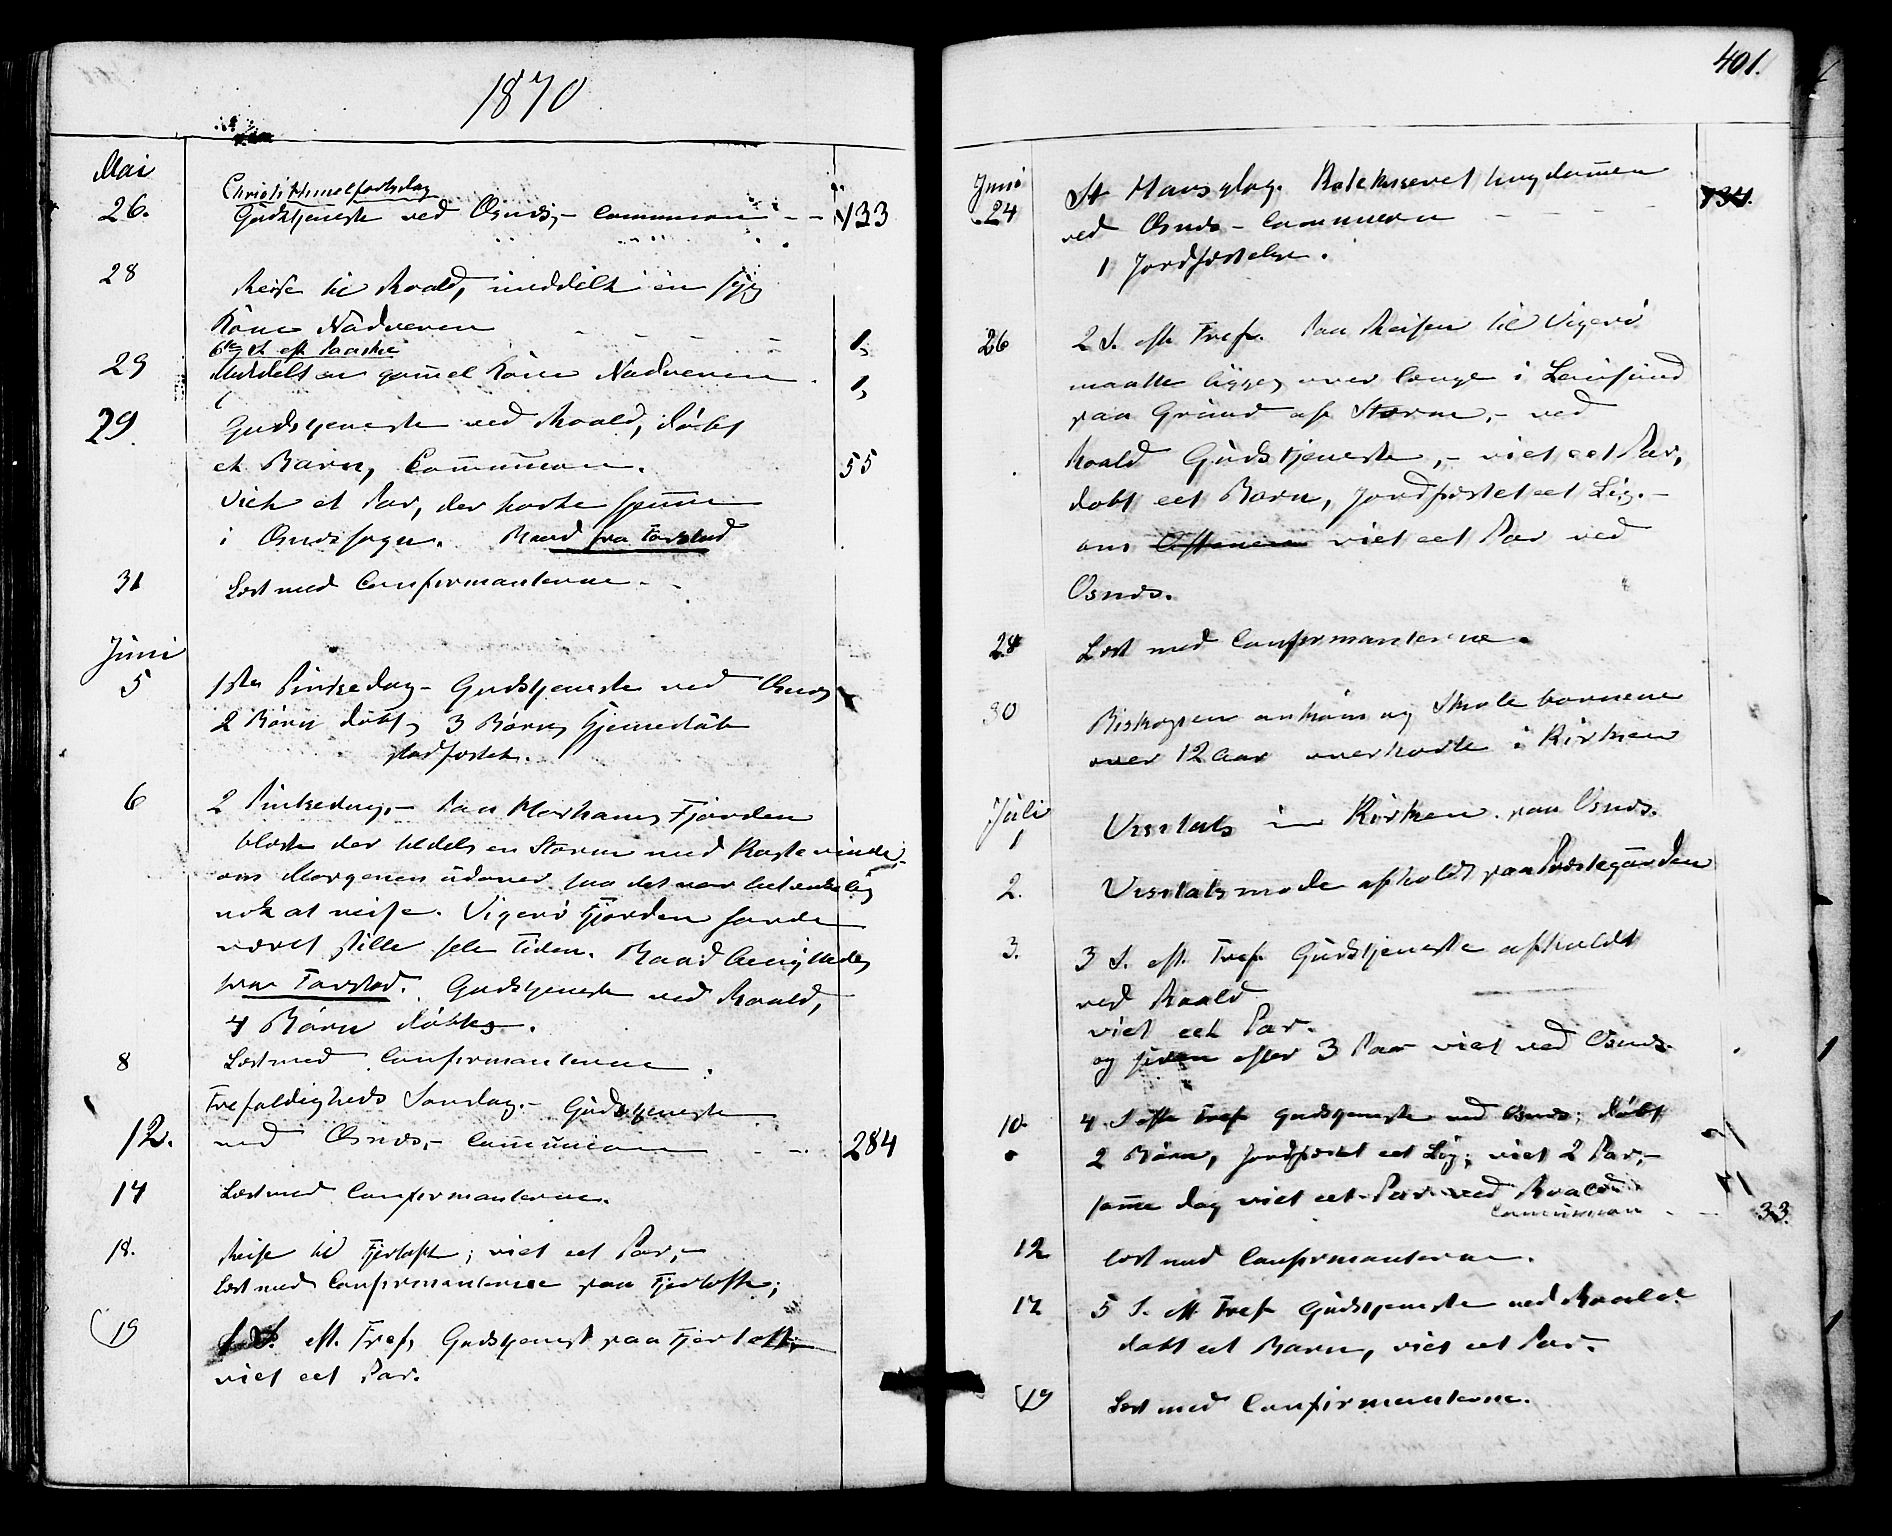 1870
Mai
Christi Himelfartsdag
26. Gudstjeneste ved Osnæs, - Communion - - 133
28 Reise til Roald, meddelt en syg
Kone Nadveren - - - - 1,
6te S. eft Paaske
29 Meddelt en gam̄el Kone Nadveren . 1,
29. Gudstjeneste ved Roald, døbt
et Barn, Com̄union. 55
Viet et Par, der hørte hjem̄e
i Osnæs sogn. Baad fra Farstad
31 Læst med Confirmanterne -
Juni
5 1ste Pintsedag - Gudstjeneste ved Osnæs
2 Børn døbt, 3 Børns Hjemedåb
stadfæstet.
6 2 Pintsedag, - Paa Harhams Fjorden
blæste der tildels en Storm med Kastevinde
om Morgenen udover saa det var betænkelig
nok at reise. Vigerø Fjorden havde
været stille hele Tiden. Baad benyttedes
fra Farstad. Gudstjeneste ved Roald,
4 Børn døbtes.
8 Læst med Confirmanterne .
Trefoldigheds Søndag. - Gudstjeneste
12. ved Osnæs, - Com̄union - - 284
14 Læst med Confirmanterne.
18. Reise til Fjørtoft; viet eet Par, -
læst med Confirmanterne paa Fjørtoft;
19 1 S. eft. Tref, Gudstjenest paa Fjørtoft
viet eet Par.
401.
Juni St Hansdag. Katekiseret Ungdom̄en
24 ved Osnæs - Communion - - - - 134.
1 Jordfæstelse.
26 2 S. eft Tref. Paa Reisen til Vigerø
maatte ligge over længe i
paa Grund af Storm, - ved
Roald Gudstjeneste, - viet eet Par,
døbt eet Barn, jordfæstet eet Lig. -
om Aftenen viet eet Par ved
Osnæs.
28 Læst med Confirmanterne.
30 Biskopen ankom og Skolebørnene
over 12 Aar overhørte i Kirken
Juli
1 Visitats i Kirken paa Osnæs.
2. Visitatsmøde afholdt paa Præstegaarden
3. 3 S. eft. Tref Gudstjeneste afholdt
ved Roald
viet eet Par.
og siden efter 3 Par viet ved Osnæs.
10. 4 S eft Tref Gudstjeneste ved Osnæs; døbt
2 Børn, jordfæstet eet Lig; viet 2 Par, -
sam̄e Dag viet eet Par ved Roald
Communion - - 33.
12 læst med Confirmanterne.
17 5 S. eft Tref Gudstjeneste ved Roald
døbt et Barn, viet eet Par. -
19 Læst med Confirmanterne.